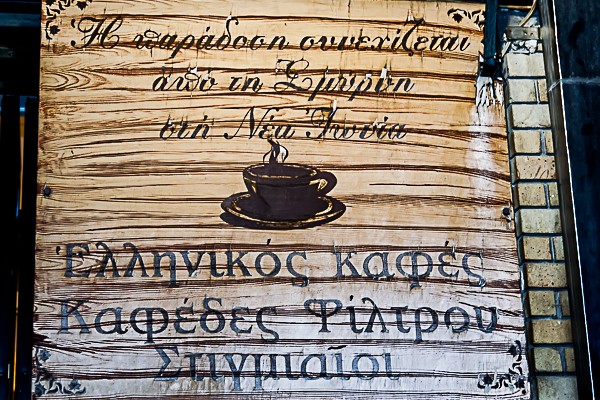 Ἡ παράδοση συνεχίζεται
ἀπό τή Σμύρνη
στή Νέα Ἰωνία
Ἑλληνικός καφές
Καφέδες Φίλτρου
Στιγμιαῖοι